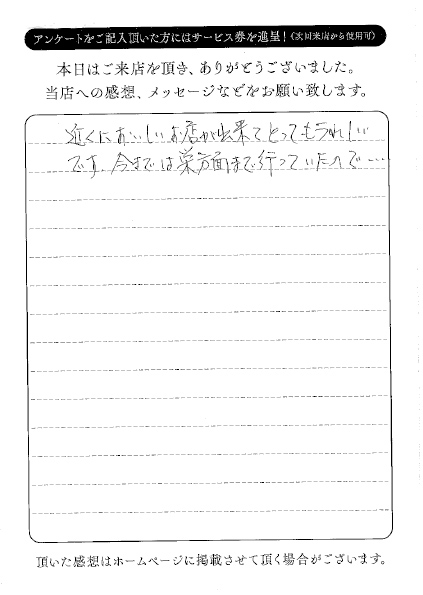 アンケートをご記入頂いた方にはサービス券を進呈！（次回来店から使用可）
本日はご来店を頂き、ありがとうございました。
当店への感想、メッセージなどをお願い致します。
近くにおいしいお店が出来てとってもうれしい
です。今までは栄方面まで行っていたので……
頂いた感想はホームページに掲載させて頂く場合がございます。